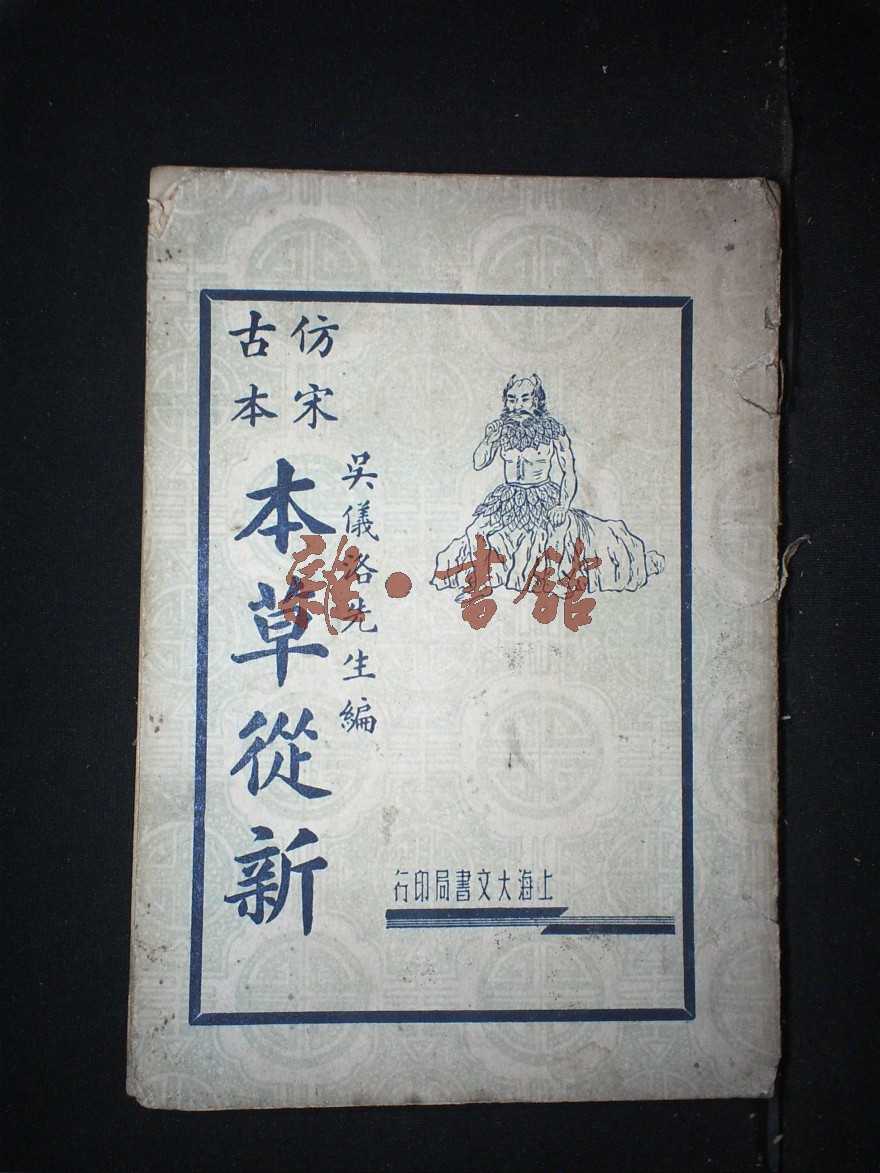 仿宋
古本
吴儀洛先生編
本草從新
上海大文書局印行
雜·書館